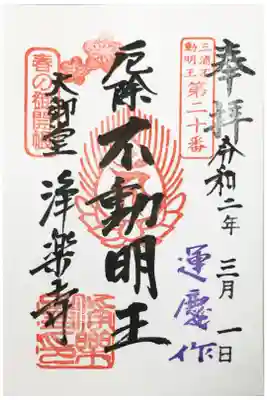 奉拝
令和二年 三月 一日
三浦不動明王
第二十番
運慶作
厄除 不動明王
大御堂 浄楽寺
春の御開帳